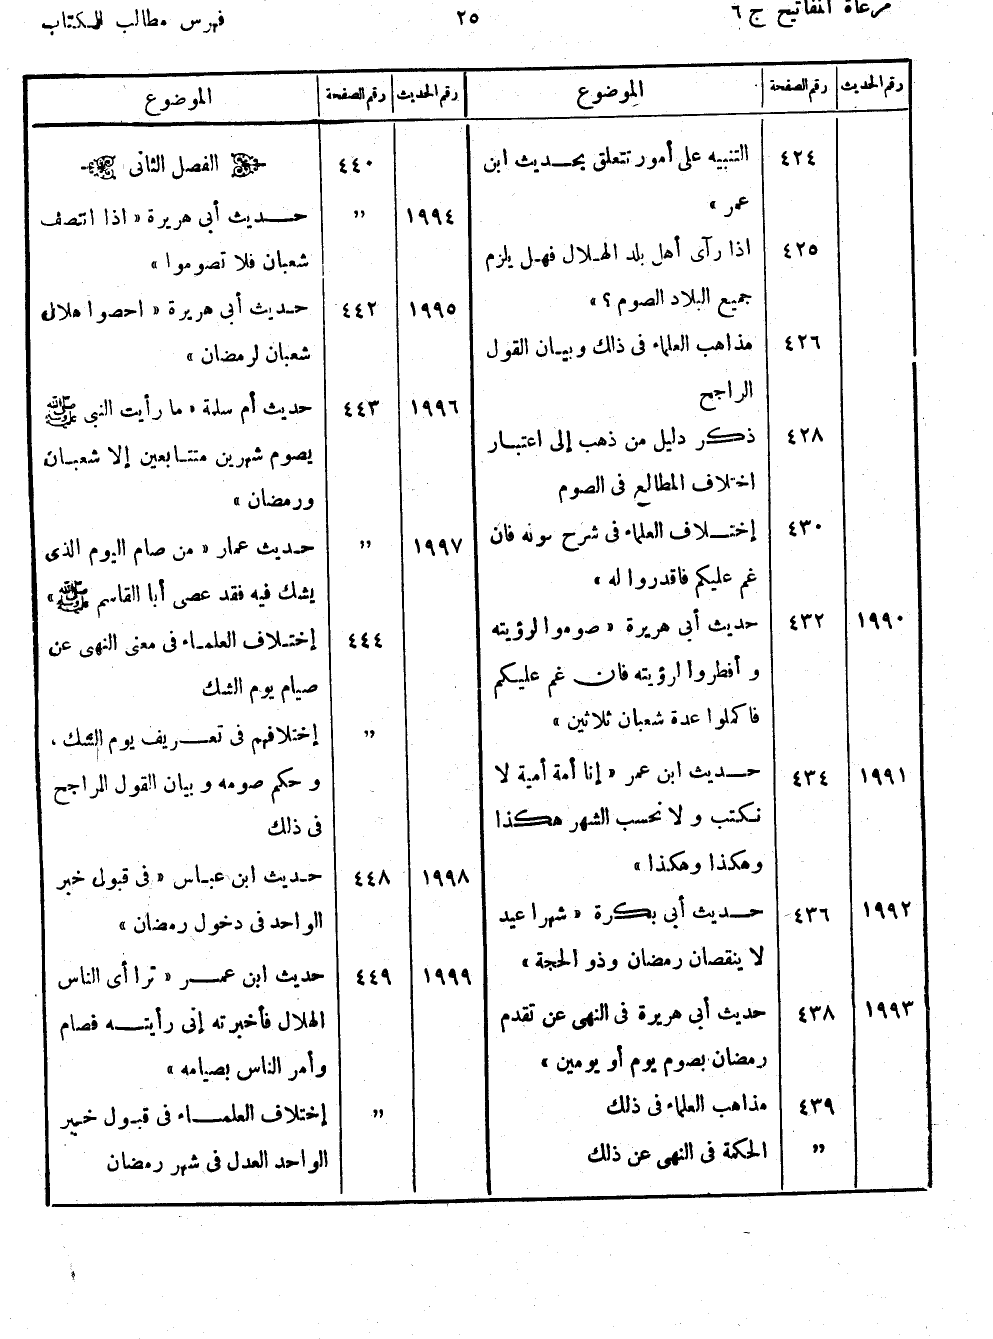 مرعاة المفاتيح ج ٦ ٢٥ فهرس مطالب الكتاب
رقم الحديث رقم الصفحة الموضوع
٤٢٤ التنبيه على أمور تتعلق بحديث ابن
عمر »
٤٢٥ اذا رآى أهل بلد الهلال فهل يلزم
جميع البلاد الصوم ؟ »
٤٢٦ مذاهب العلماء فى ذلك وبيان القول
الراجح
٤٢٨ ذكر دليل من ذهب إلى اعتبار
اختلاف المطالع فى الصوم
٤٣٠ إختلاف العلماء فى شرح فان
غم عليكم فاقدروا له »
١٩٩٠ ٤٣٢ حديث أبى هريرة « صوموا لرؤيته
و أفطروا لرؤيته فان غم عليكم
فاكملوا عدة شعبان ثلاثين »
١٩٩١ ٤٣٤ حديث ابن عمر « إنا أمة أمية لا
نكتب و لا نحسب الشهر هكذا
وهكذا وهكذا »
١٩٩٢ ٤٣٦ حديث أبى بكرة « شهرا عيد
لا ينقصان رمضان وذو الحجة »
١٩٩٣ ٤٣٨ حديث أبى هريرة فى النهى عن تقدم
رمضان بصوم يوم أو يومين »
٤٣٩ مذاهب العلماء فى ذلك
” الحكمة فى النهى عن ذلك
رقم الحديث رقم الصفحة الموضوع
٤٤٠ الفصل الثانى
١٩٩٤ ” حديث أبى هريرة « اذا انتصف
شعبان فلا تصوموا »
١٩٩٥ ٤٤٢ حديث أبى هريرة « احصوا هلال
شعبان لرمضان »
١٩٩٦ ٤٤٣ حديث أم سلمة « ما رأيت النبى ﷺ
يصوم شهرين متتابعين إلا شعبان
ورمضان »
١٩٩٧ ” حديث عمار « من صام اليوم الذى
يشك فيه فقد عصى أبا القاسم ﷺ »
٤٤٤ إختلاف العلماء فى معنى النهى عن
صيام يوم الشك
” إختلافهم فى تعريف يوم الشك ،
و حكم صومه و بيان القول الراجح
فى ذلك
١٩٩٨ ٤٤٨ حديث ابن عباس « فى قبول خبر
الواحد فى دخول رمضان »
١٩٩٩ ٤٤٩ حديث ابن عمر « ترا أى الناس
الهلال فأخبرته إنى رأيته فصام
وأمر الناس بصيامه »
” إختلاف العلماء فى قبول خبر
الواحد العدل فى شهر رمضان